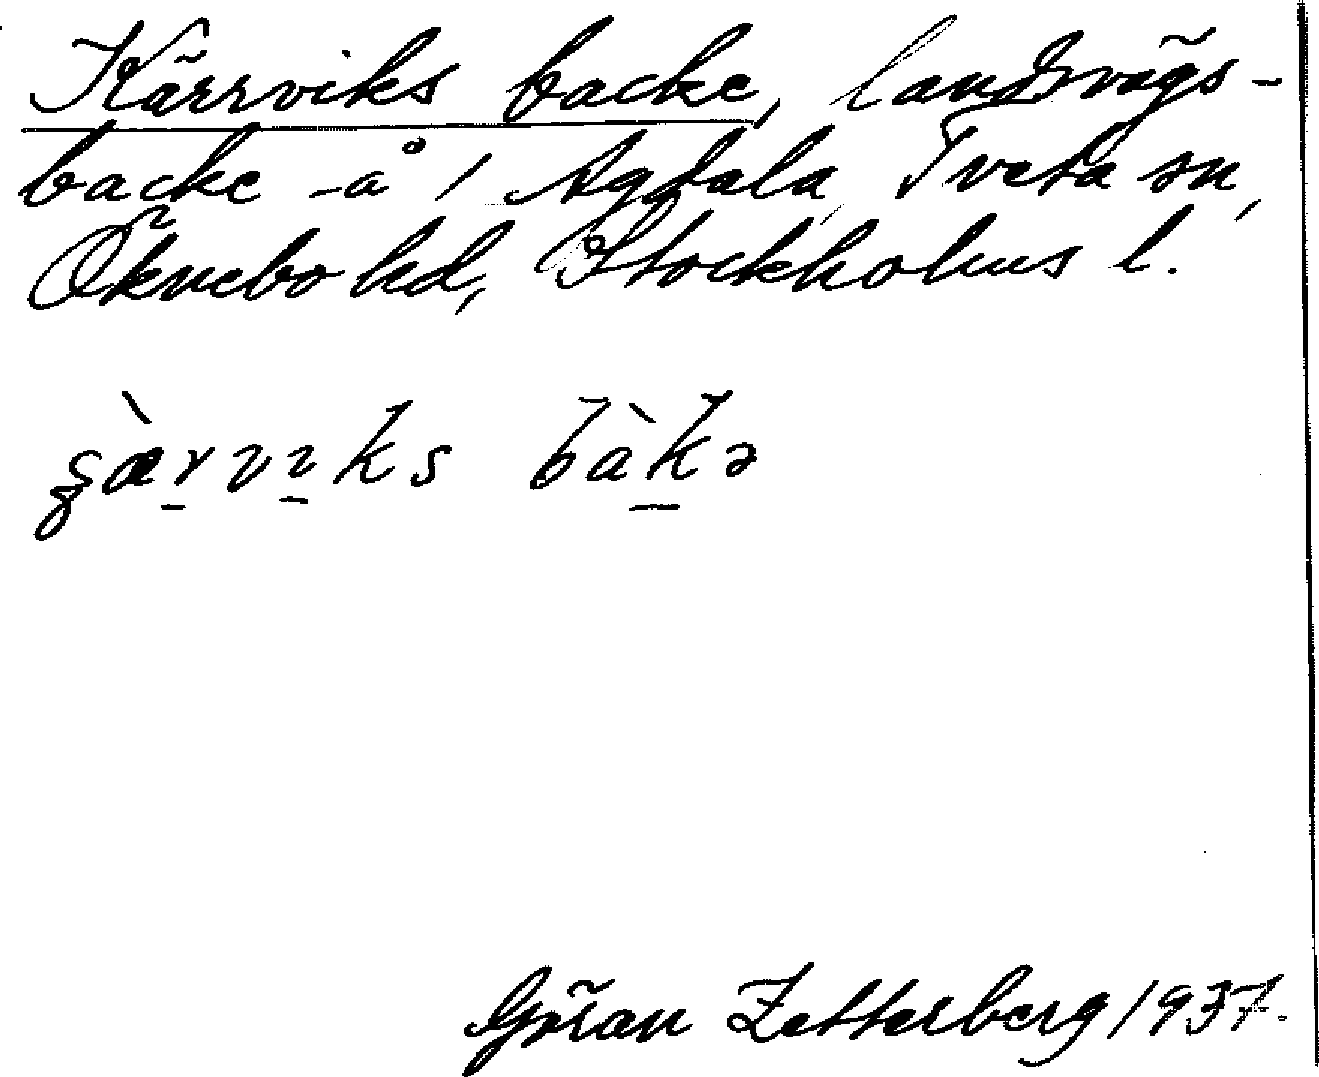 Kärrviks backe, landsvägs-
backe å / Agdala, Tveta sn,
Öknebo hd, Stockholms l.
bàkə
Göran Zetterberg 1937.